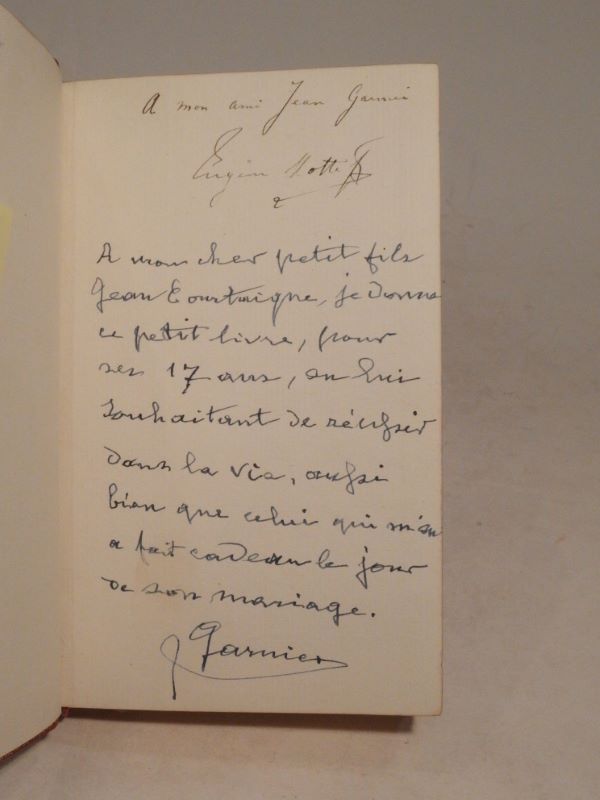 A mon ami Jean Garnier
Eugène Motte
A mon cher petit fils
Jean Courtaigne, je donne
ce petit livre, pour
ses 17 ans, en lui
souhaitant de réussir
dans la vie, aussi
bien que celui qui m'en
a fait cadeau le jour
de son mariage.
J Garnier